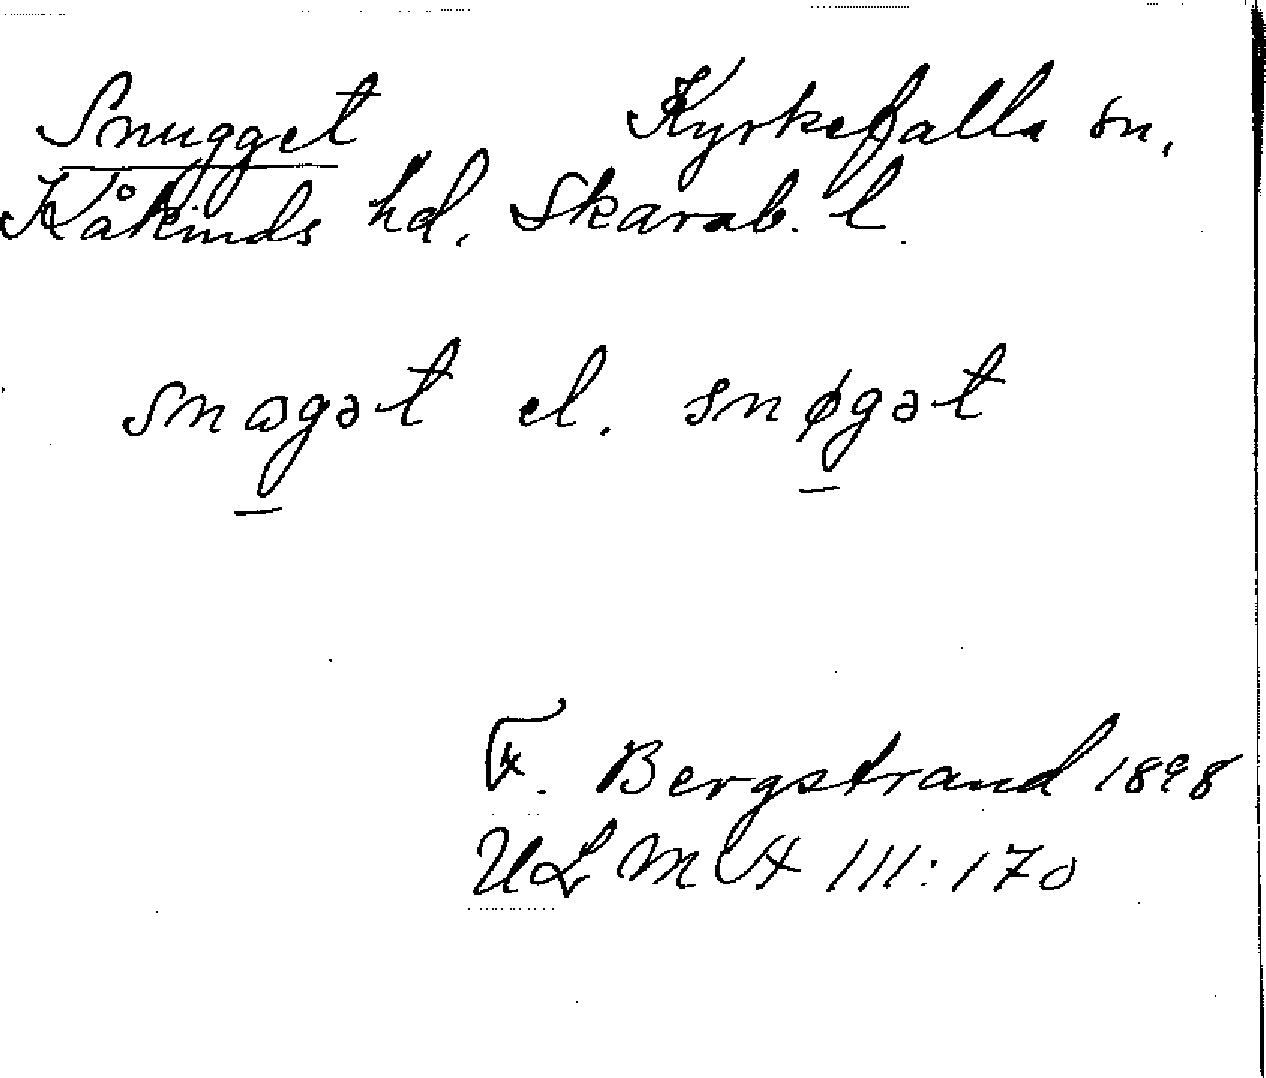 Snugget Kyrkefalla sn,
Kåkinds hd. Skarab. l.
snøgət el. snøgət
F. Bergstrand 1898
ULM III:170